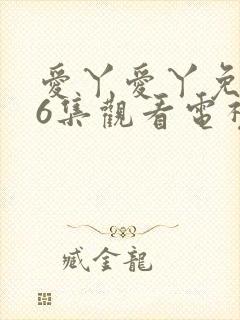 愛丫愛丫免
6集觀看電視
臧金龍